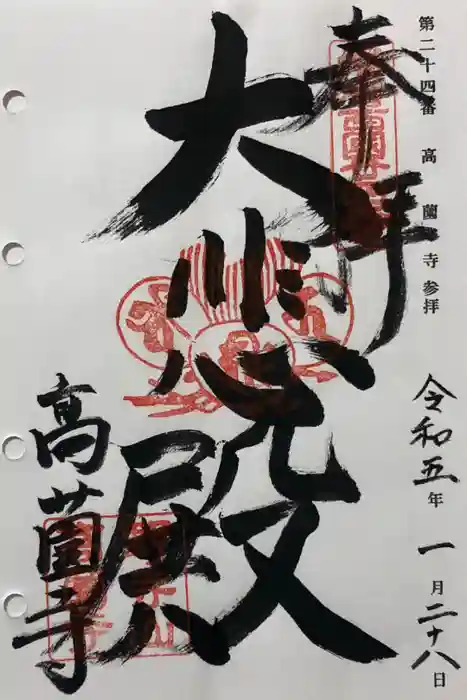 第二十四番 高蘭寺参拝
令和五年一月二十八日
奉拝
大悲殿
高蘭寺